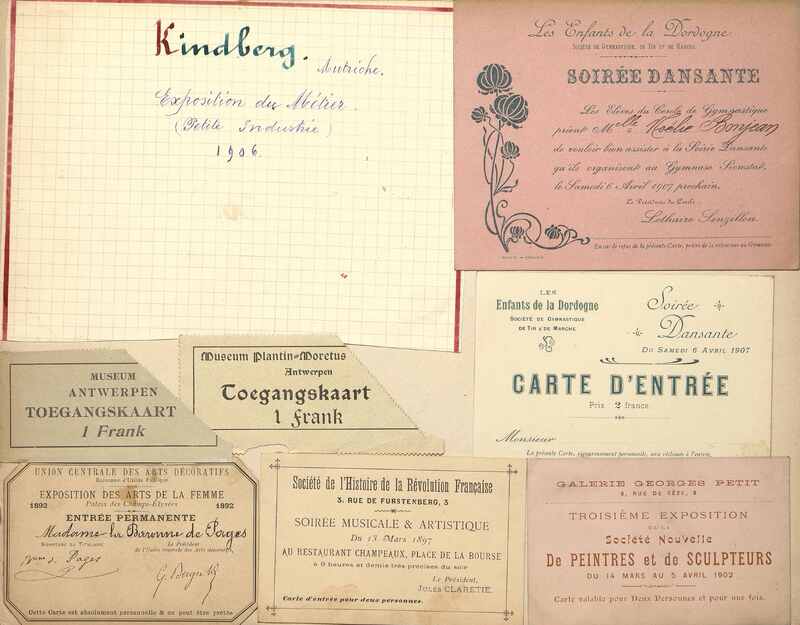 Kindberg. Autriche.
Exposition du Métier.
(Petite Industrie)
1906.
Les Enfants de la Dordogne
SOCIÉTÉ DE GYMNASTIQUE, DE TIR ET DE MARCHE.
SOIRÉE DANSANTE
Les Elèves du Cercle de Gymnastique
prient Melle Noélie Bonjean
de vouloir bien assister à la Soirée Dansante
qu'ils organisent au Gymnase
le Samedi 6 Avril 1907 prochain.
Le Président du Cercle,
Lothaire Sinzillon.
En cas de refus de la présente Carte, prière de la retourner au Gymnase.
LES
Enfants de la Dordogne
SOCIÉTÉ DE GYMNASTIQUE
DE TIR & DE MARCHE
Soirée
Dansante
DU SAMEDI 6 AVRIL 1907
CARTE D'ENTRÉE
Prix : 2 francs.
Monsieur
La présente Carte, rigoureusement personnelle, sera réclamée à l'entrée.
MUSEUM
ANTWERPEN
TOEGANGSKAART
1 Frank
Museum Plantin-Moretus
Antwerpen
Toegangskaart
1 Frank
UNION CENTRALE DES ARTS DÉCORATIFS
Reconnue d'Utilité Publique
EXPOSITION DES ARTS DE LA FEMME
1892 Palais des Champs-Elysées 1892
ENTRÉE PERMANENTE
Madame la Baronne de Pages
SIGNATURE DU TITULAIRE
Le Président
de l'Union centrale des Arts décoratifs,
Bonne de Pages
Cette Carte est absolument personnelle & ne peut être prêtée
Société de l'Histoire de la Révolution Française
3, RUE DE FURSTENBERG, 3
SOIRÉE MUSICALE & ARTISTIQUE
Du 13 Mars 1897
AU RESTAURANT CHAMPEAUX, PLACE DE LA BOURSE
à 9 heures et demie très précises du soir
Le Président,
JULES CLARETIE.
Carte d'entrée pour deux personnes.
GALERIE GEORGES PETIT
8, RUE DE SÈZE, 8
TROISIÈME EXPOSITION
DE LA
Société Nouvelle
DE PEINTRES et de SCULPTEURS
DU 14 MARS AU 5 AVRIL 1902
Carte valable pour Deux Personnes et pour une fois.